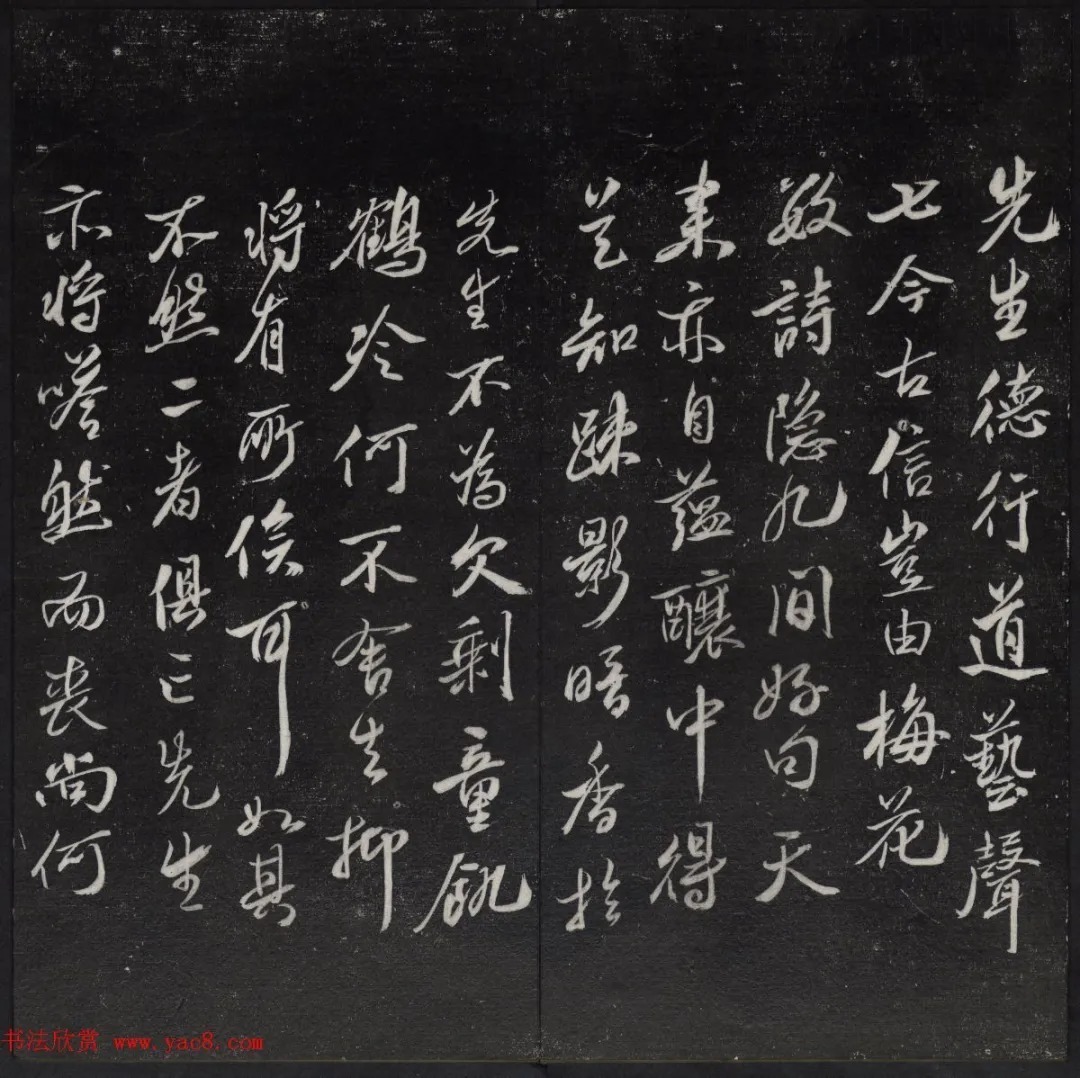 先生德行道藝聲
七今古信豈由梅花
詩隐几間好句天
来亦自蕴釀中得
是知踈影暗香於
先生不為欠剩童飢
鶴冷何不舍去抑
将有所俟耶如其
不然二者俱亡先生
亦将嗒然而喪尚何
书法欣赏 www.yac8.com